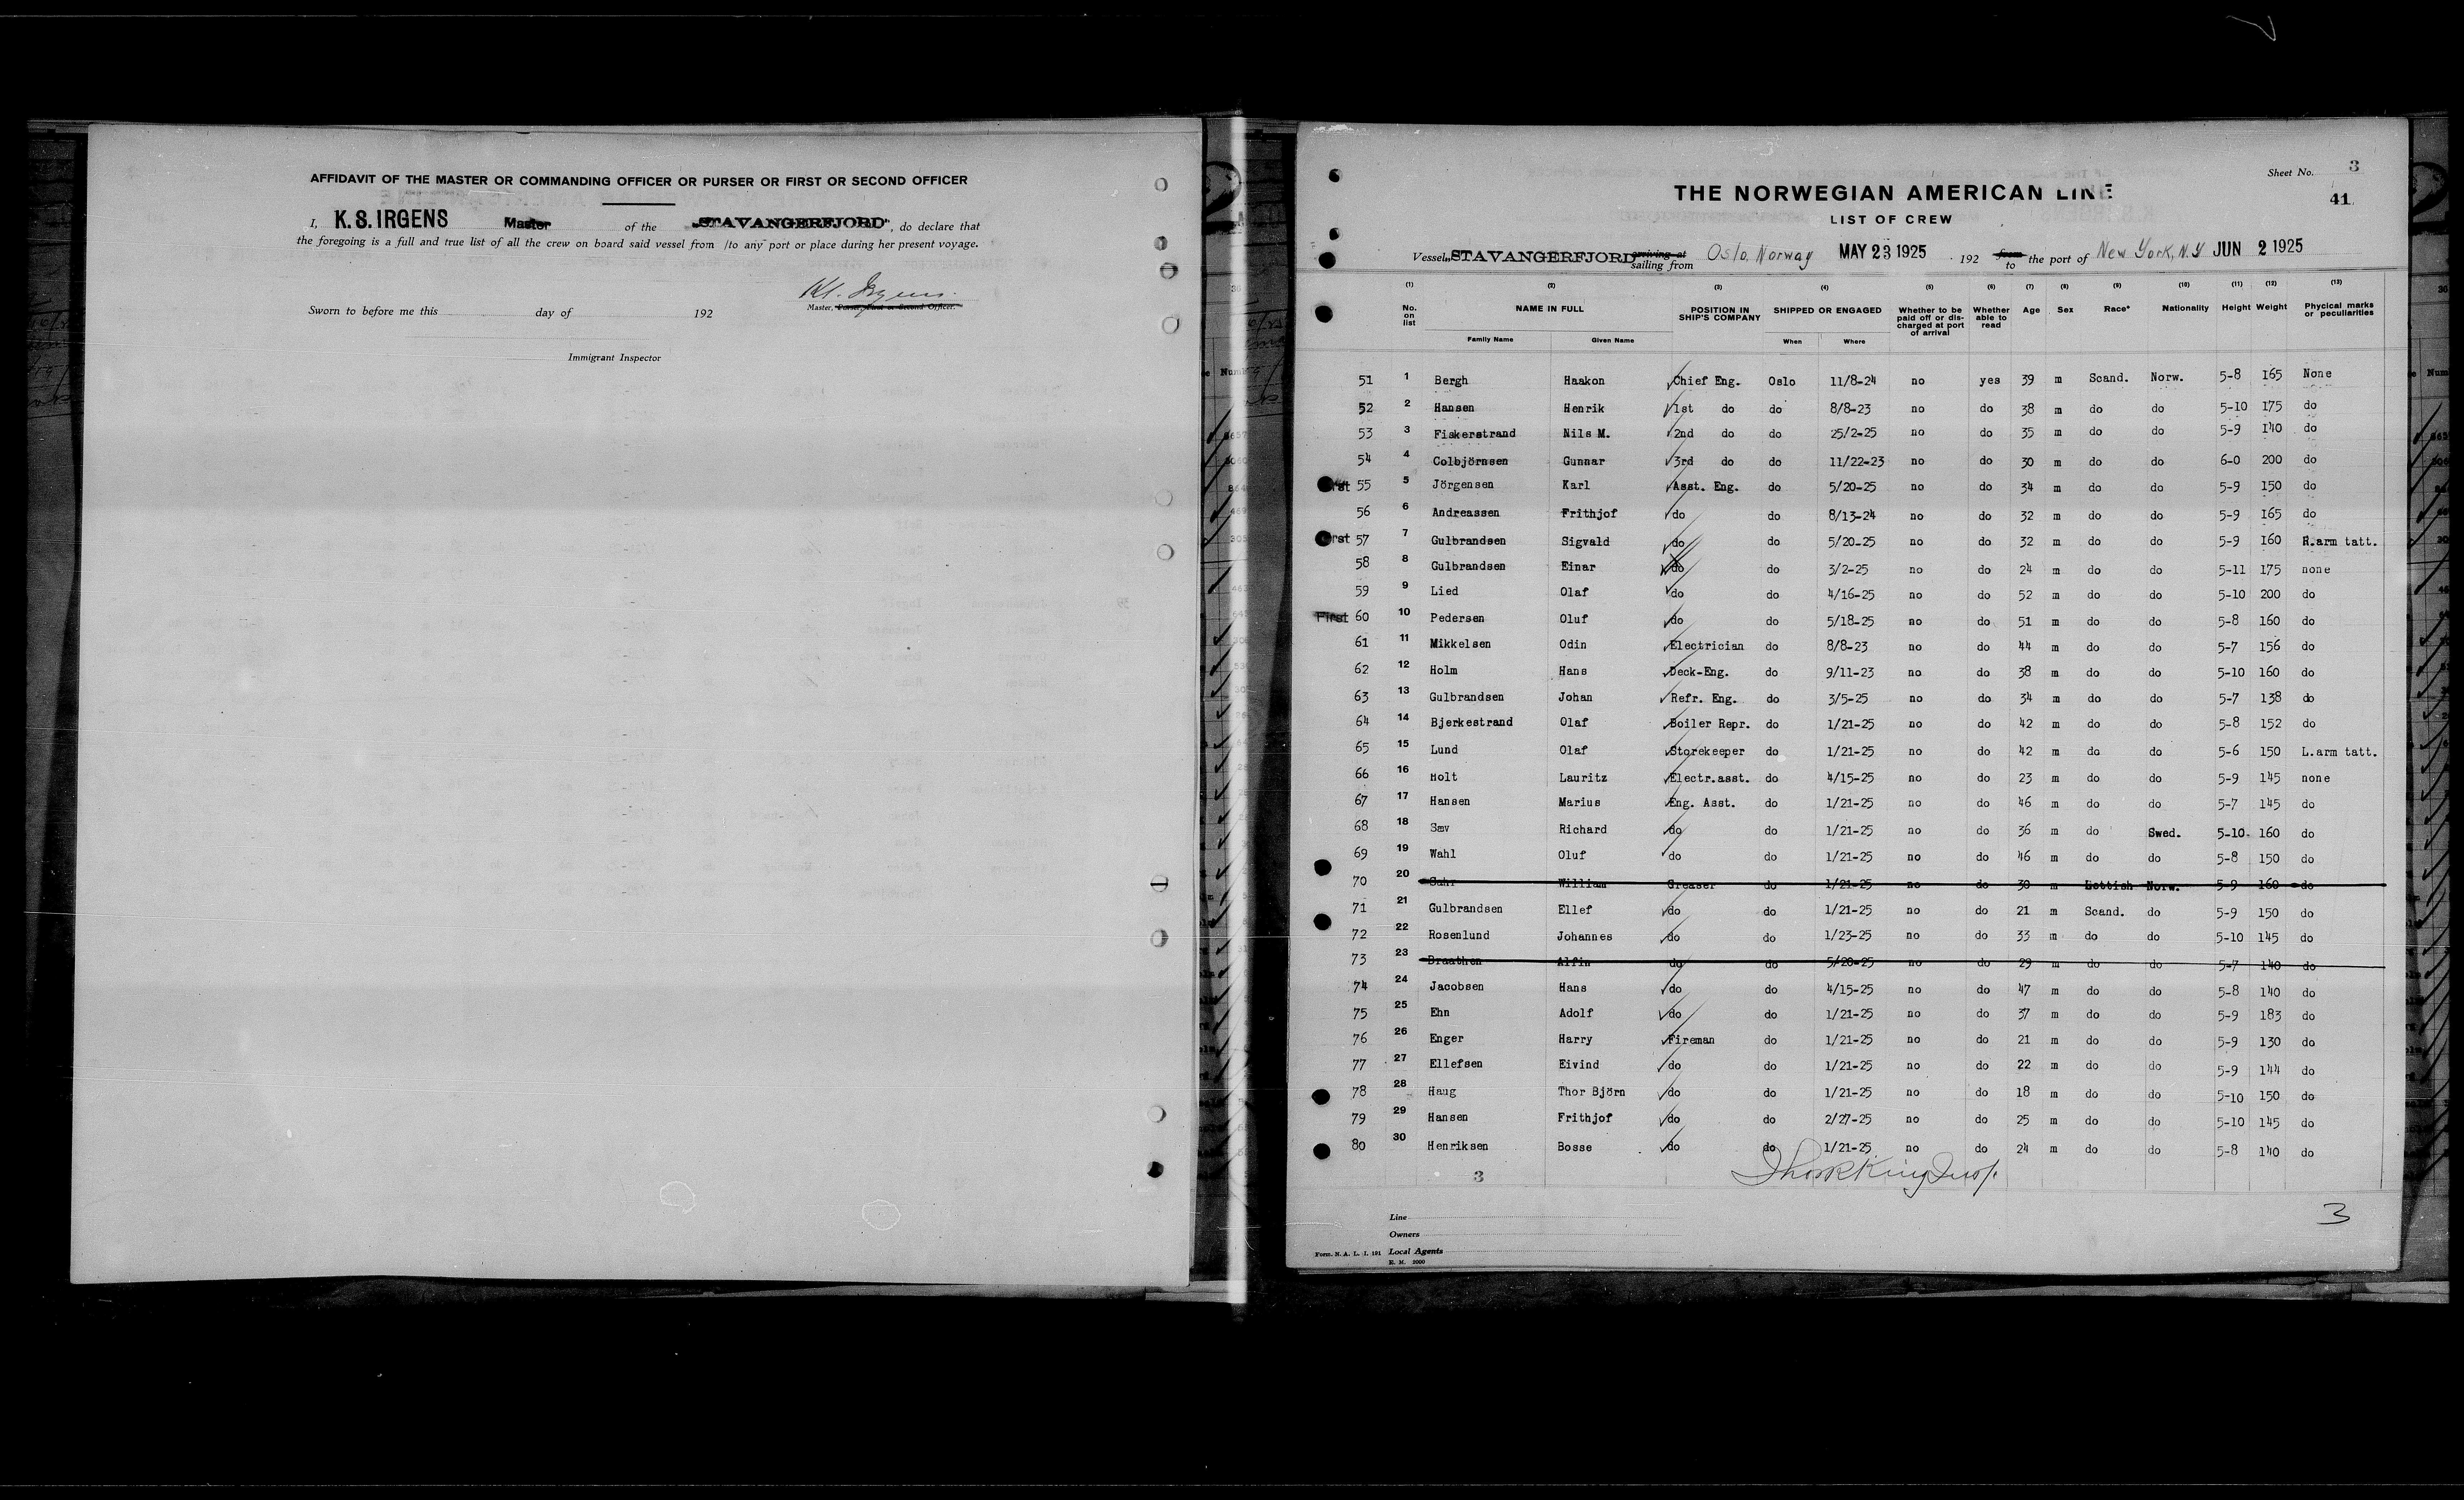 AFFIDAVIT OF THE MASTER OR COMMANDING OFFICER OR PURSER OR FIRST OR SECOND OFFICER
I, K. S. IRGENS Master of the „STAVANGERFJORD", do declare that
the foregoing is a full and true list of all the crew on board said vessel from /to any port or place during her present voyage.
Master, Purser, First or Second Officer.
Sworn to before me this day of 192
Immigrant Inspector
Sheet No. 3
THE NORWEGIAN AMERICAN LINE
41
LIST OF CREW
Vessel „STAVANGERFJORD arriving at sailing from Oslo, Norway MAY 23 1925 192 from to the port of New York, N.Y JUN 2 1925
(1) (2) (3) (4) (5) (6) (7) (8) (9) (10) (11) (12) (13)
No. on list NAME IN FULL POSITION IN SHIP'S COMPANY SHIPPED OR ENGAGED Whether to be paid off or discharged at port of arrival Whether able to read Age Sex Race* Nationality Height Weight Phycical marks or peculiarities
Family Name Given Name When Where
51 1 Bergh Haakon Chief Eng. Oslo 11/8-24 no yes 39 m Scand. Norw. 5-8 165 None
52 2 Hansen Henrik 1st do do 8/8-23 no do 38 m do do 5-10 175 do
53 3 Fiskerstrand Nils M. 2nd do do 25/2-25 no do 35 m do do 5-9 140 do
54 4 Colbjörnsen Gunnar 3rd do do 11/22-23 no do 30 m do do 6-0 200 do
First 55 5 Jörgensen Karl Asst. Eng. do 5/20-25 no do 34 m do do 5-9 150 do
56 6 Andreassen Frithjof do do 8/13-24 no do 32 m do do 5-9 165 do
First 57 7 Gulbrandsen Sigvald do do 5/20-25 no do 32 m do do 5-9 160 R.arm tatt.
58 8 Gulbrandsen Einar do do 3/2-25 no do 24 m do do 5-11 175 none
59 9 Lied Olaf do do 4/16-25 no do 52 m do do 5-10 200 do
First 60 10 Pedersen Oluf do do 5/18-25 no do 51 m do do 5-8 160 do
61 11 Mikkelsen Odin Electrician do 8/8-23 no do 44 m do do 5-7 156 do
62 12 Holm Hans Deck-Eng. do 9/11-23 no do 38 m do do 5-10 160 do
63 13 Gulbrandsen Johan Refr. Eng. do 3/5-25 no do 34 m do do 5-7 138 do
64 14 Bjerkestrand Olaf Boiler Repr. do 1/21-25 no do 42 m do do 5-8 152 do
65 15 Lund Olaf Storekeeper do 1/21-25 no do 42 m do do 5-6 150 L.arm tatt.
66 16 Holt Lauritz Electr.asst. do 4/15-25 no do 23 m do do 5-9 145 none
67 17 Hansen Marius Eng. Asst. do 1/21-25 no do 46 m do do 5-7 145 do
68 18 Sæv Richard do do 1/21-25 no do 36 m do Swed. 5-10 160 do
69 19 Wahl Oluf do do 1/21-25 no do 46 m do do 5-8 150 do
70 20 William Greaser do 1/21-25 no do 30 m Lettish Norw. 5-9 160 do
71 21 Gulbrandsen Ellef do do 1/21-25 no do 21 m Scand. do 5-9 150 do
72 22 Rosenlund Johannes do do 1/23-25 no do 33 m do do 5-10 145 do
73 23 Braathen Alfin do do 5/20-25 no do 29 m do do 5-7 140 do
74 24 Jacobsen Hans do do 4/15-25 no do 47 m do do 5-8 140 do
75 25 Ehn Adolf do do 1/21-25 no do 37 m do do 5-9 183 do
76 26 Enger Harry Fireman do 1/21-25 no do 21 m do do 5-9 130 do
77 27 Ellefsen Eivind do do 1/21-25 no do 22 m do do 5-9 144 do
78 28 Haug Thor Björn do do 1/21-25 no do 18 m do do 5-10 150 do
79 29 Hansen Frithjof do do 2/27-25 no do 25 m do do 5-10 145 do
80 30 Henriksen Bosse do do 1/21-25 no do 24 m do do 5-8 140 do
3
3
Line
Owners
Form. N. A. L. I. 191 Local Agents
R. M. 2000